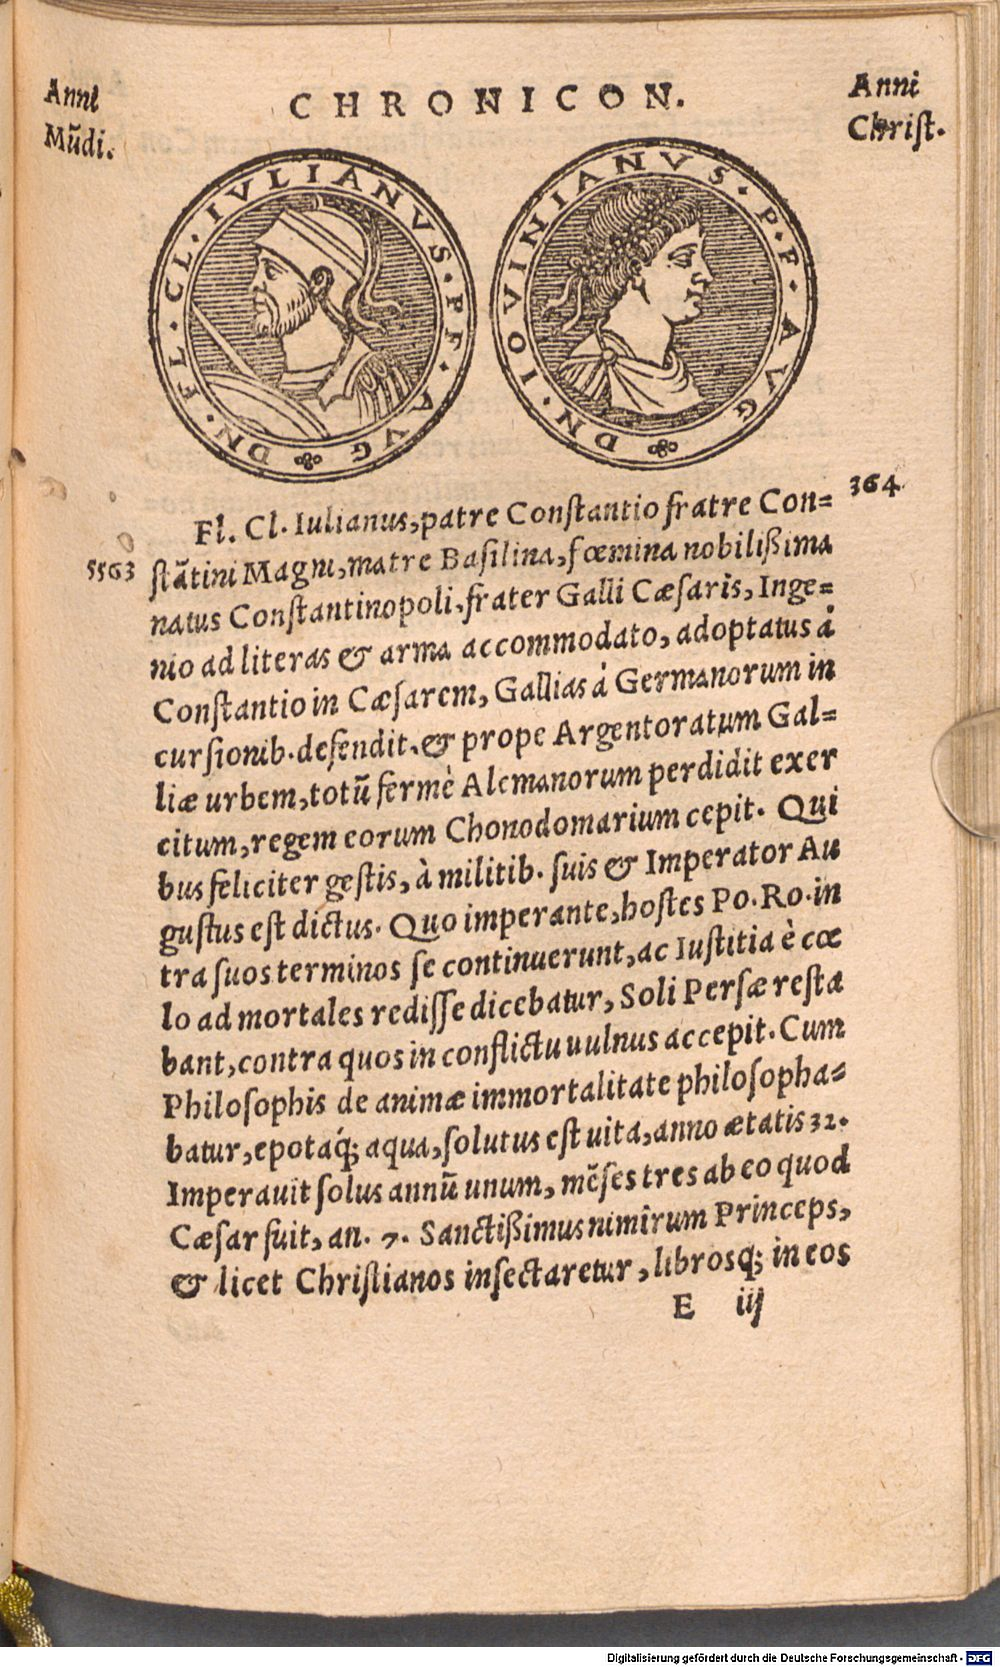 Anni
Mũdi.
CHRONICON.
Anni
Christ.
DN. FL. CL. IVLIANVS. PF. AVG
DN. IOVINIANVS. P. F. AVG
364
Fl. Cl. Iulianus, patre Constantio fratre Con=
5563
stãtini Magni, matre Basilina, fœmina nobilißima
natus Constantinopoli, frater Galli Cæsaris, Inge=
nio ad literas & arma accommodato, adoptatus à
Constantio in Cæsarem, Gallias à Germanorum in
cursionib. defendit, & prope Argentoratum Gal=
liæ urbem, totũ fermè Alemanorum perdidit exer
citum, regem eorum Chonodomarium cepit. Qui
bus feliciter gestis, à militib. suis & Imperator Au
gustus est dictus. Quo imperante, hostes Po. Ro. in
tra suos terminos se continuerunt, ac Iustitia è cœ
lo ad mortales redisse dicebatur, Soli Persæ resta
bant, contra quos in conflictu uulnus accepit. Cum
Philosophis de animæ immortalitate philosopha=
batur, epotaq́; aqua, solutus est uita, anno ætatis 32.
Imperauit solus annũ unum, mẽses tres ab eo quod
Cæsar fuit, an. 7. Sanctißimus nimirum Princeps,
& licet Christianos insectaretur, librosq; in eos
E iij
Digitalisierung gefördert durch die Deutsche Forschungsgemeinschaft - DFG